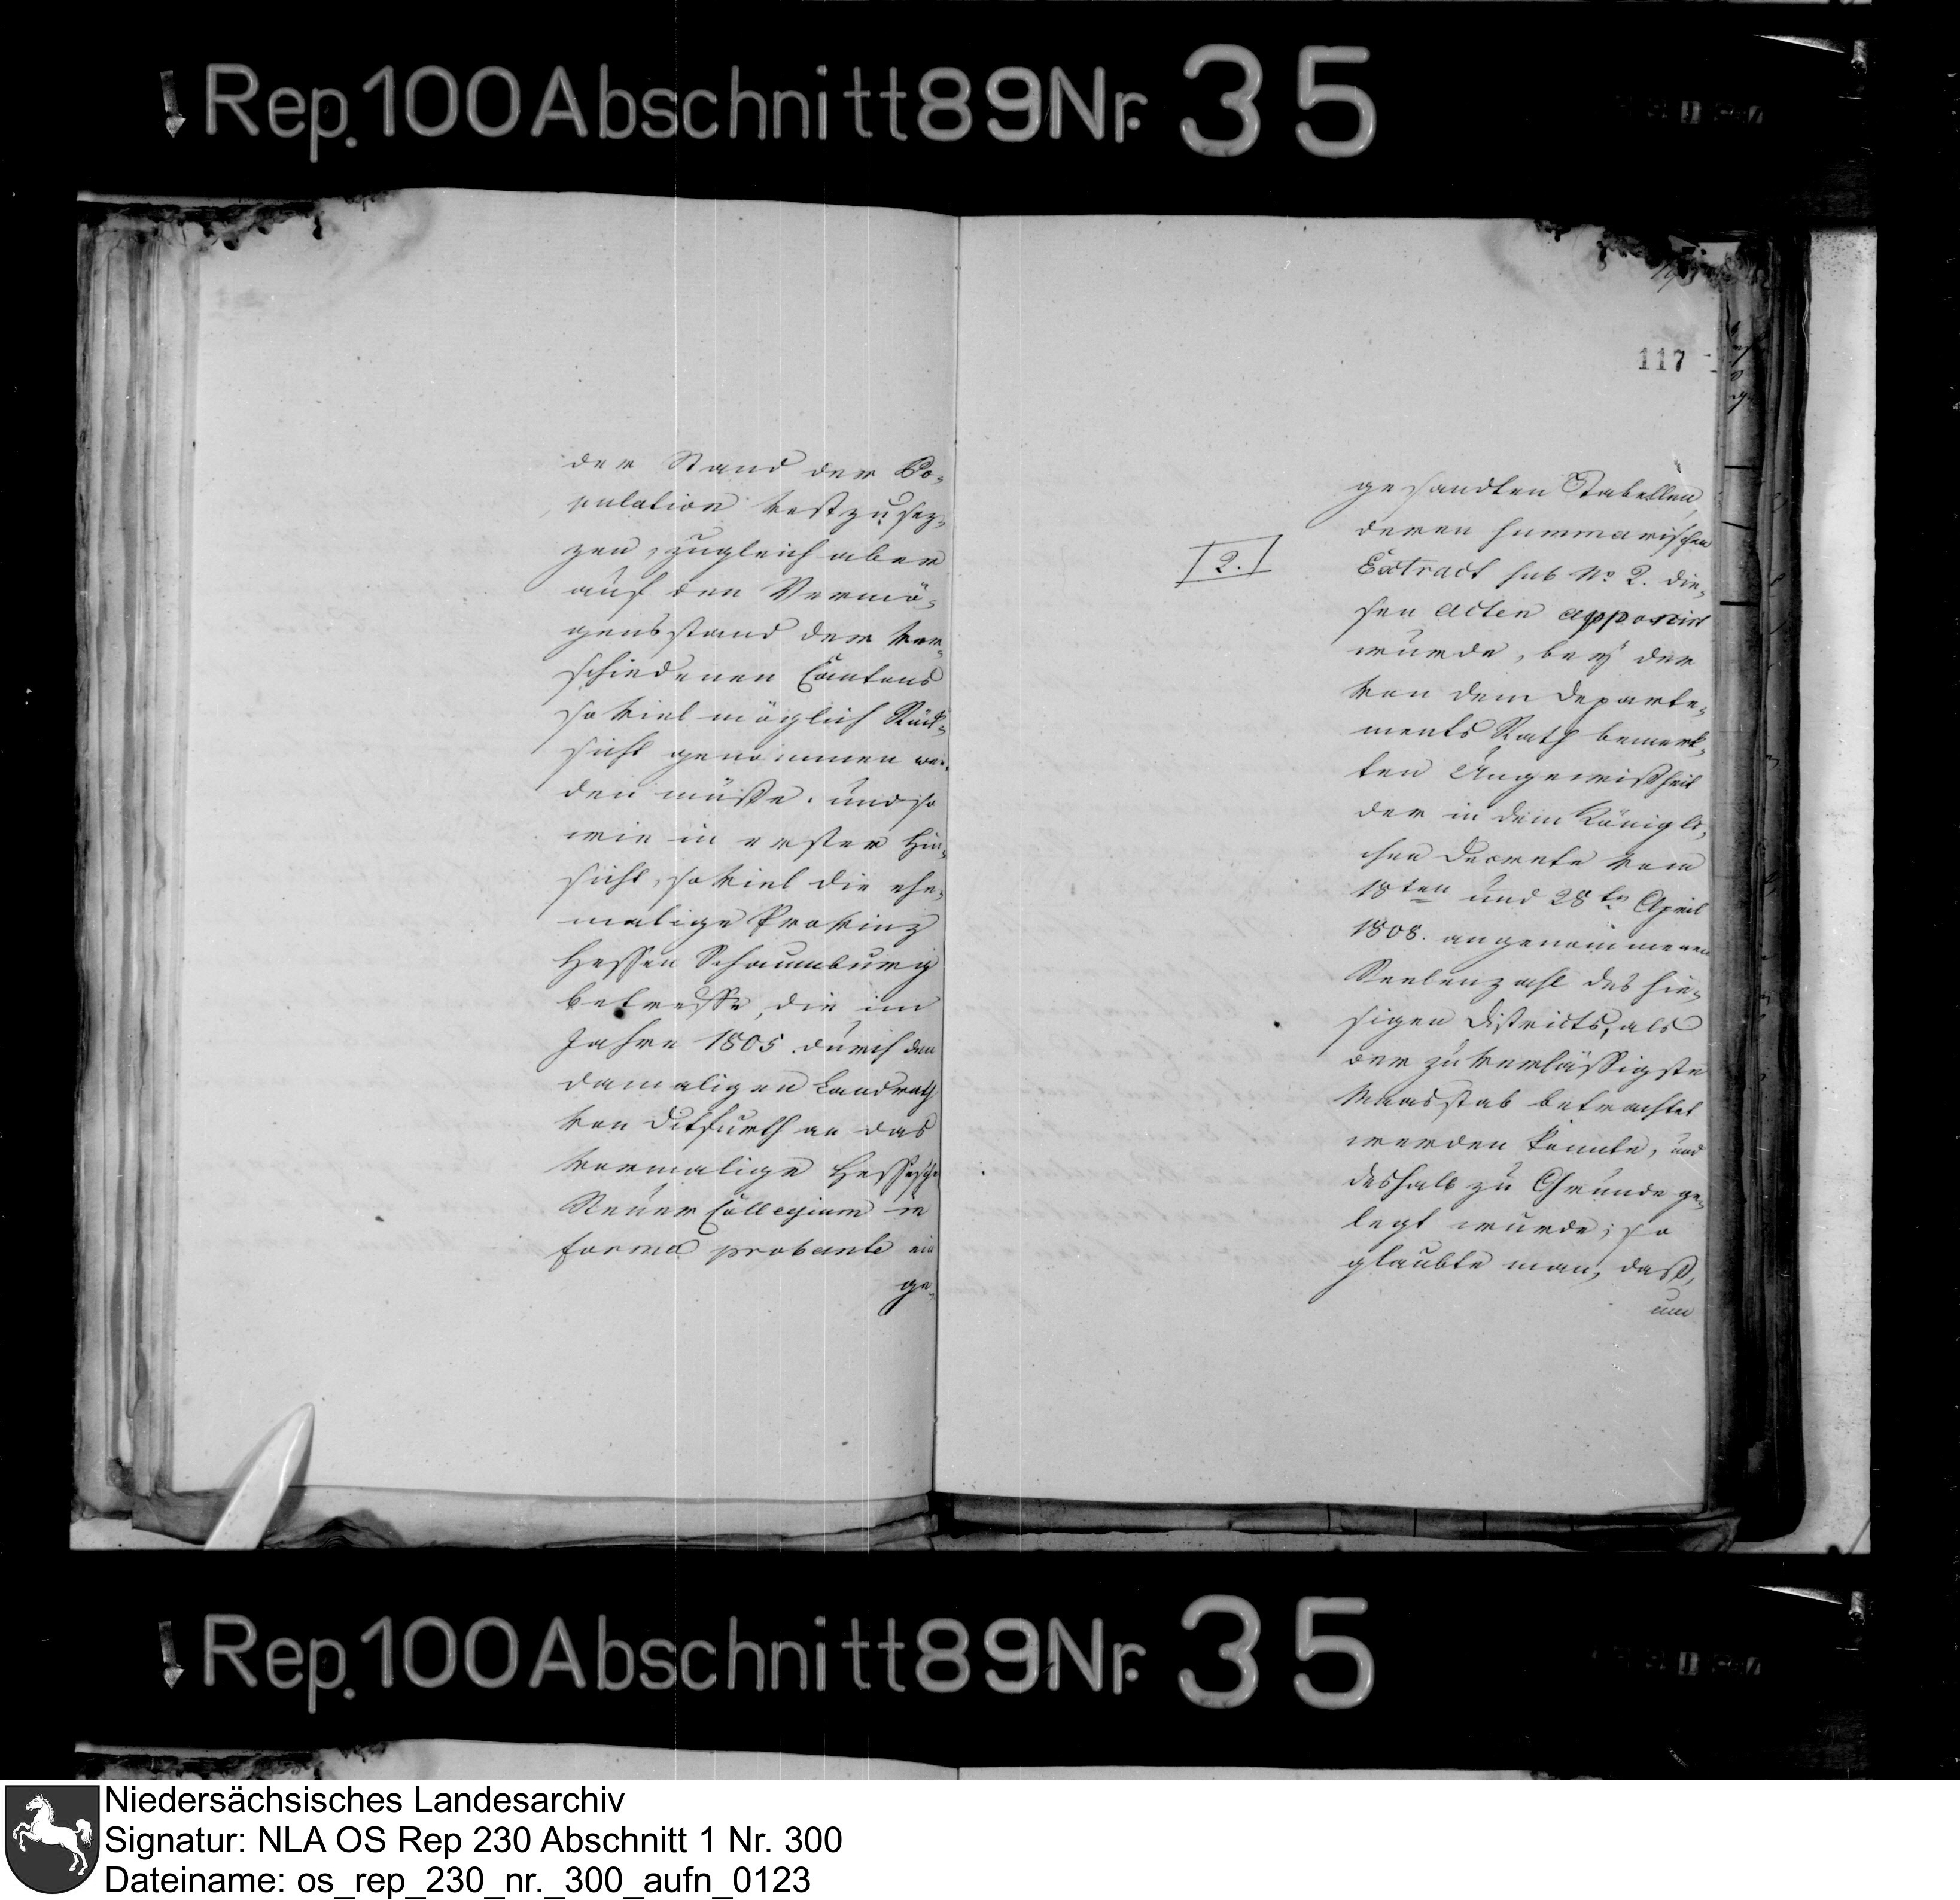 Rep. 100 Abschnitt 89 Nr. 35
117
der Stand der Po-
pulation vestzusez-
zen, zugleich aber
auf den Vermö-
gensstand der ver-
schiedenen Cantons
so viel möglich Rück-
sicht genommen wer-
den müsse. und so
wie in erster Hin-
sicht, so viel die ehe-
malige Provinz
Hessen Schaumburg
betreffe, die im
Jahre 1805 durch den
damaligen Landrath
von Ditfurth an das
vormalige Hessische
Steuer Collegium in
forma probante ein
ge-
gesandten Tabellen,
deren summarischer
2.
Extract sub No 2. die-
sen Acten apponirt
wurde, bey der
von dem Departe-
ments Rath bemerk-
ten Ungewißheit
der in dem Königli-
chen Decrete vom
18ten und 28ten April
1808. angenommenen
Seelenzahl des hie-
sigen Districts, als
der zuverlässigste
Maasstab betrachtet
werden könnte, und
deshalb zu Grunde ge-
legt wurde; so
glaubte man, daß,
um
Rep. 100 Abschnitt 89 Nr. 35
Niedersächsisches Landesarchiv
Signatur: NLA OS Rep 230 Abschnitt 1 Nr. 300
Dateiname: os_rep_230_nr._300_aufn_0123